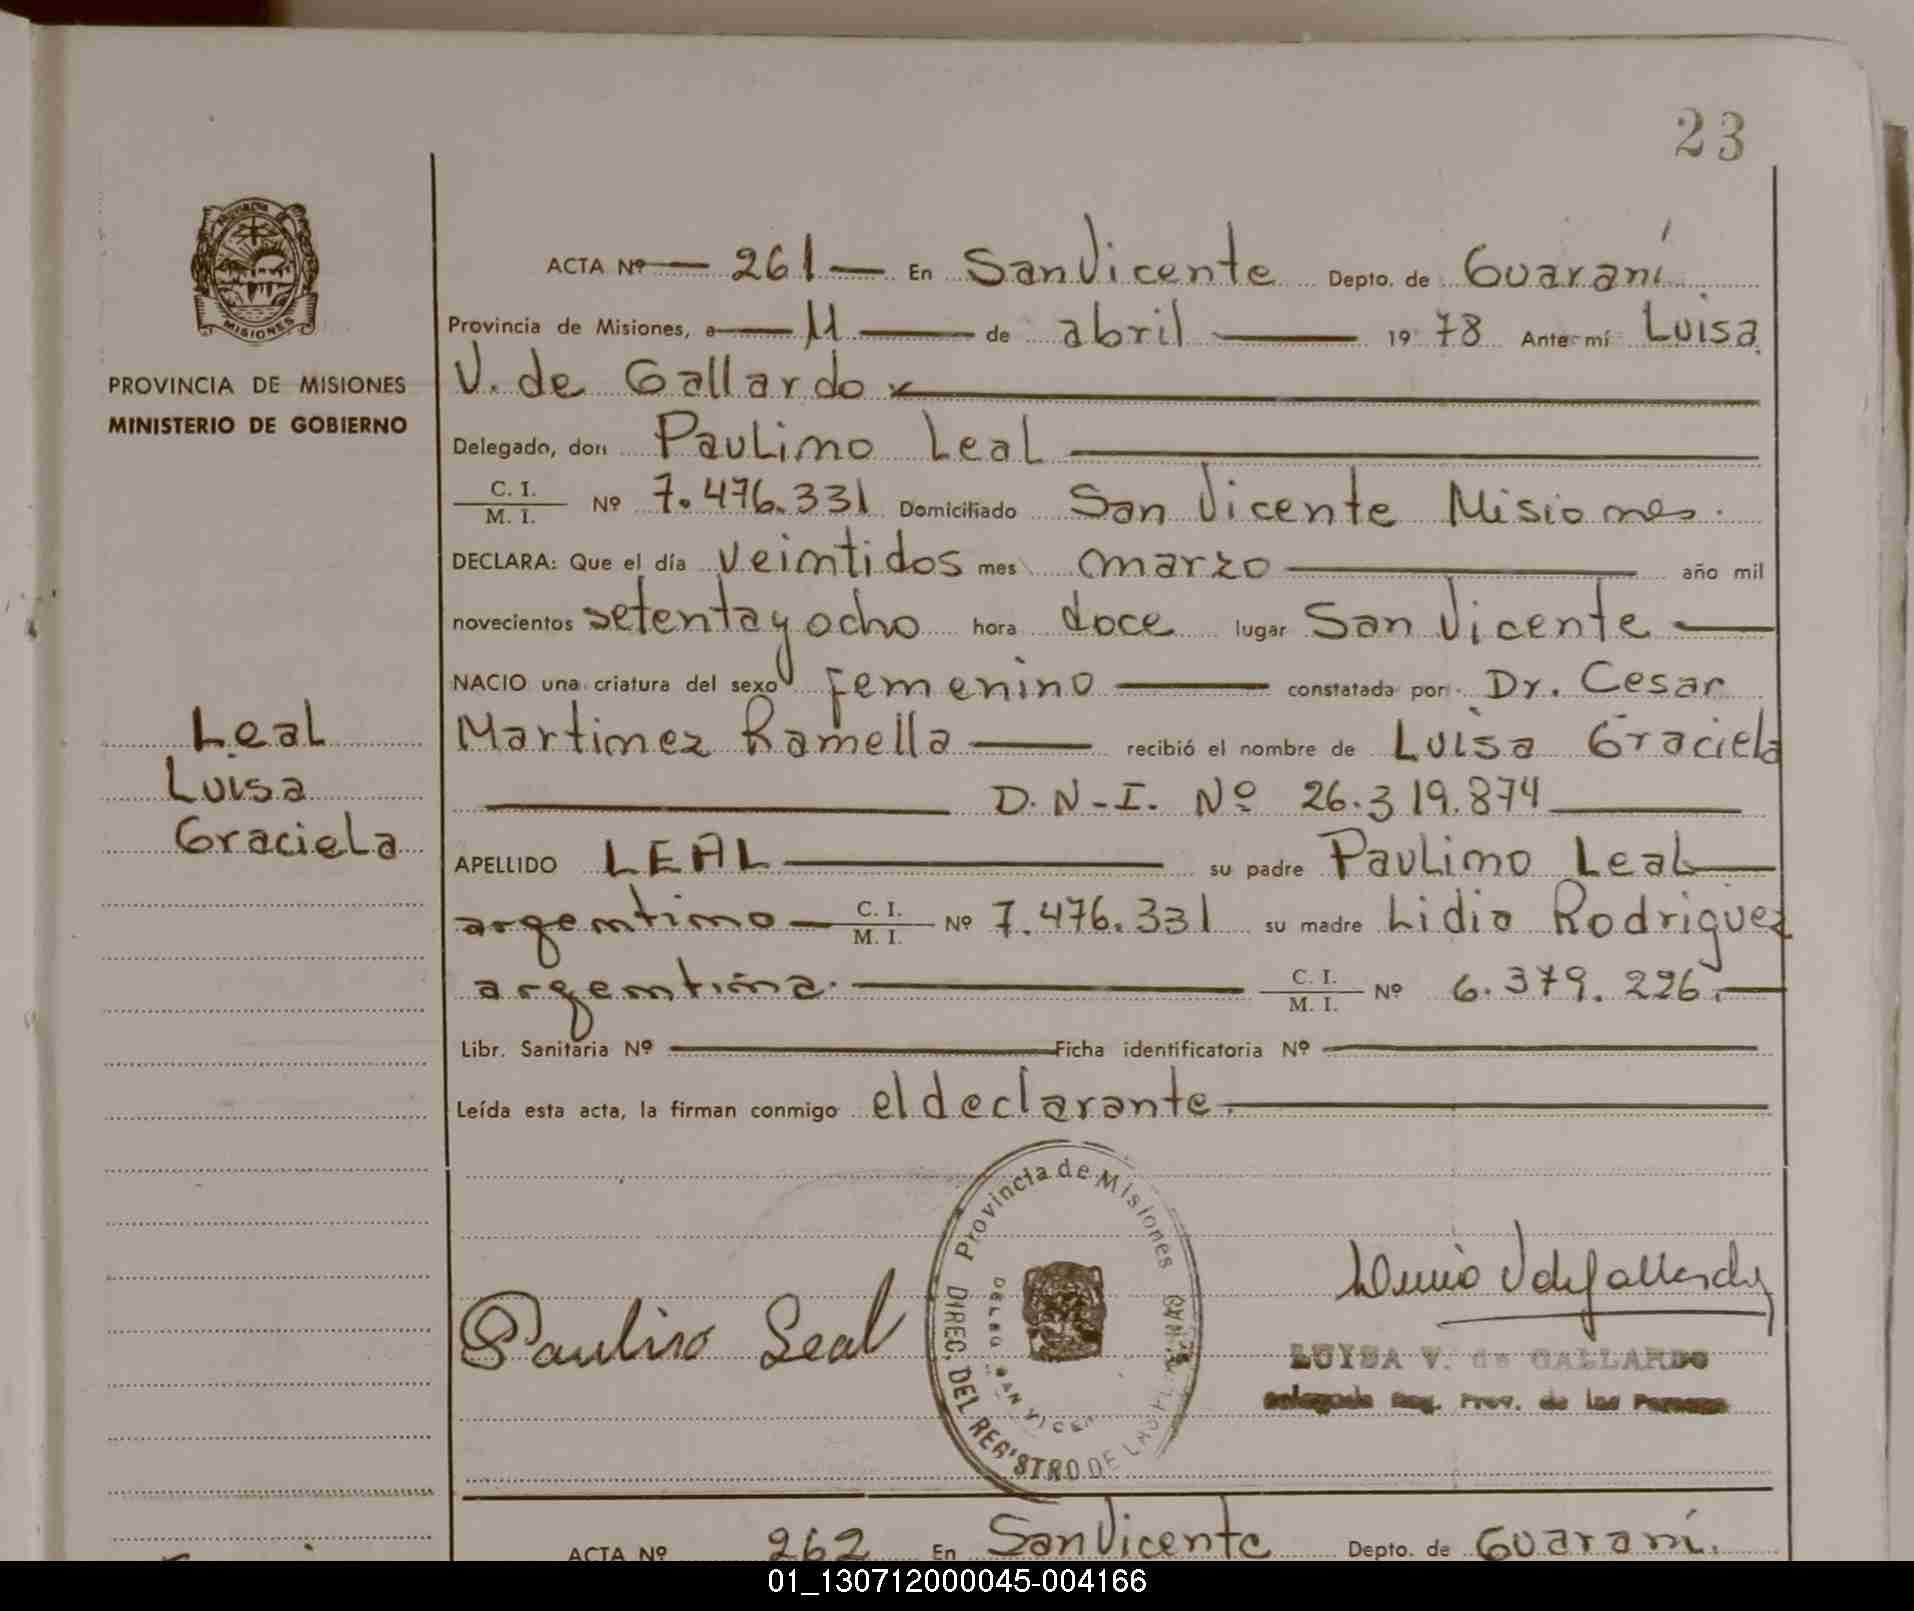 23
ACTA Nº 261 En San Vicente Depto. de Guaraní
Provincia de Misiones, a 11 de abril 1978 Ante mí Luisa
V. de Gallardo
PROVINCIA DE MISIONES
MINISTERIO DE GOBIERNO
MISIONES
Delegado, don Paulino Leal
C. I.
M. I. Nº 7.476.331 Domiciliado San Vicente Misiones.
DECLARA: Que el día veintidos mes marzo año mil
novecientos setenta y ocho hora doce lugar San Vicente
NACIO una criatura del sexo femenino constatada por Dr. Cesar
Martinez Ramella recibió el nombre de Luisa Graciela
D. N. I. Nº 26.319.874
Leal
Luisa
Graciela
APELLIDO LEAL su padre Paulino Leal
argentino C. I.
M. I. Nº 7.476.331 su madre Lidia Rodriguez
argentina. C. I.
M. I. Nº 6.379.226.
Libr. Sanitaria Nº Ficha identificatoria Nº
Leída esta acta, la firman conmigo el declarante.
Provincia de Misiones
DIREC. DEL REGISTRO DE LAS
Paulino Leal
LUISA V. de GALLARDO
Delegada Reg. Prov. de las Personas
ACTA Nº 262 En San Vicente Depto. de Guaraní.
01_130712000045-004166